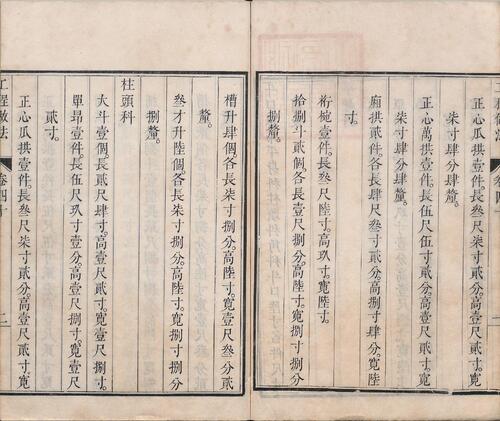 正心瓜拱壹件。長叁尺柒寸貳分。高壹尺貳寸。寬
柒寸肆分肆釐。
正心萬拱壹件。長伍尺伍寸貳分。高壹尺貳寸。寬
柒寸肆分肆釐。
廂拱貳件。各長肆尺叁寸貳分。高捌寸肆分。寬陸
寸。
桁椀壹件。長叁尺陸寸。高玖寸。寬陸寸。
拾捌斗貳個。各長壹尺捌分。高陸寸。寬捌寸捌分
捌釐。
槽升肆個。各長柒寸捌分。高陸寸。寬壹尺叁分貳
釐。
叁才升陸個。各長柒寸捌分。高陸寸。寬捌寸捌分
捌釐。
柱頭科
大斗壹個。長貳尺肆寸。高壹尺貳寸。寬壹尺捌寸。
單昂壹件。長伍尺玖寸壹分。高壹尺捌寸。寬壹尺
貳寸。
正心瓜拱壹件。長叁尺柒寸貳分。高壹尺貳寸。寬
工程做法 卷四十 二